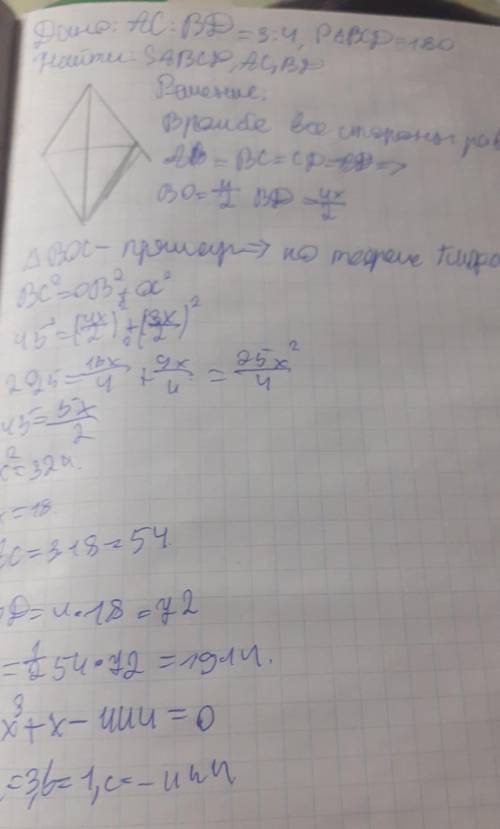 Дано: AC:BD=3:4, PABCD=180
Найти: SABCD, AC, BD
Решение.
В ромбе все стороны рав
AB = BC = CD = =>
BO = 4/2 BD = 4x/2
△ BOC - прямоуг => по теореме Пифаг
BC² = OB² + OC²
45² = (4x/2)² + (3x/2)²
2025 = 16x/4 + 9x/4 = 25x²/4
45 = 5x/2
x² = 324.
x = 18
C = 3·18 = 54
D = 4·18 = 72
= 1/2 54·72 = 1944.
x³ + x - 444 = 0
= 3, b = 1, c = - 444